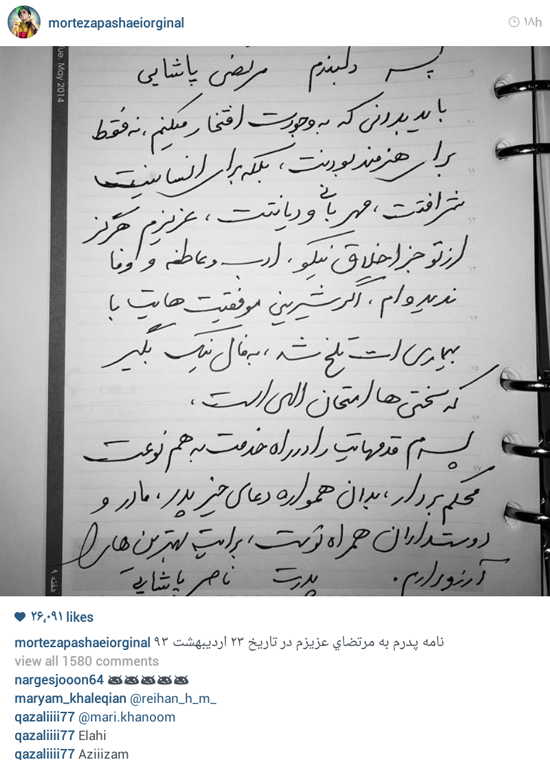 mortezapashaeiorginal
۱۸h
Tue. May 2014
پسر دلبندم مرتضی پاشایی
باید بدونی که به وجودت افتخار میکنم، نه فقط
برای هنرمند بودنت، بلکه برای انسانیت
شرافتت، مهربانی و دیانتت، عزیزم هرگز
از تو جز اخلاق نیکو، ادب و عاطفه و وفا
ندیده ام، اگر شیرینی موفقیت هایت با
بیماری ات تلخ شد، به فال نیک بگیر
که سختی ها امتحان الهی است،
پسرم قدمهایت را در راه خدمت به هم نوعت
محکم بردار، بدان همواره دعای خیر پدر، مادر و
دوستداران همراه توست، برایت بهترین ها را
آرزو دارم. پدرت ناصر پاشایی
هفته ۹
۲۶,۰۹۱ likes
mortezapashaeiorginal نامه پدرم به مرتضاي عزيزم در تاريخ ۲۳ ارديبهشت ۹۳
view all 1580 comments
nargesjooon64
maryam_khaleqian @reihan_h_m_
qazaliiii77 @mari.khanoom
qazaliiii77 Elahi
qazaliiii77 Aziiizam